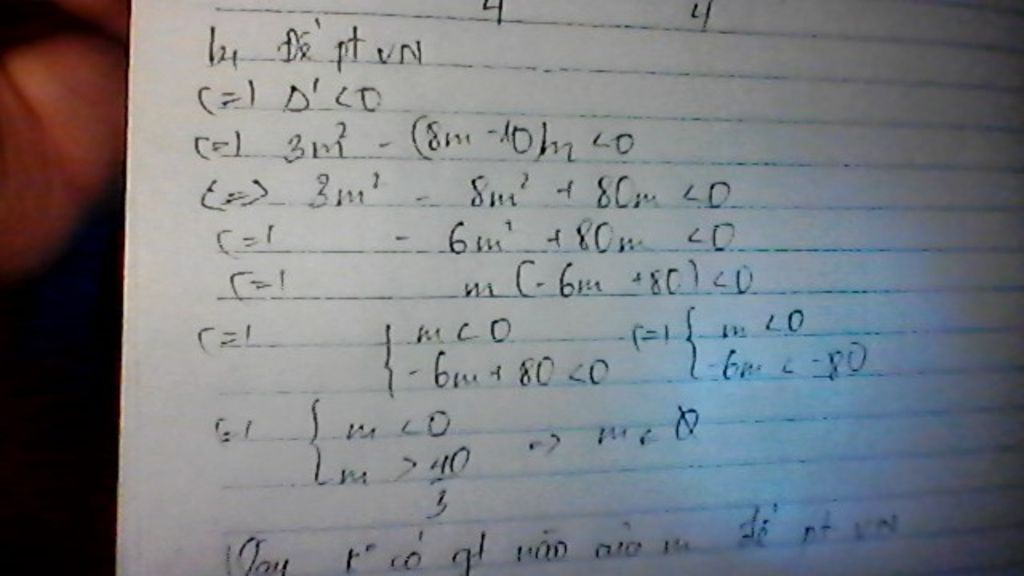 4 4
b, Để pt VN
<=> Δ' < 0
<=> 3m² - (8m - 10)m < 0
<=> 3m² - 8m² + 80m < 0
<=> - 6m² + 80m < 0
<=> m (-6m + 80) < 0
<=> { m < 0 <=> { m < 0
-6m + 80 < 0 -6m < -80
<=> { m < 0 => m <
m > 40/3
có gt nào của m để pt VN